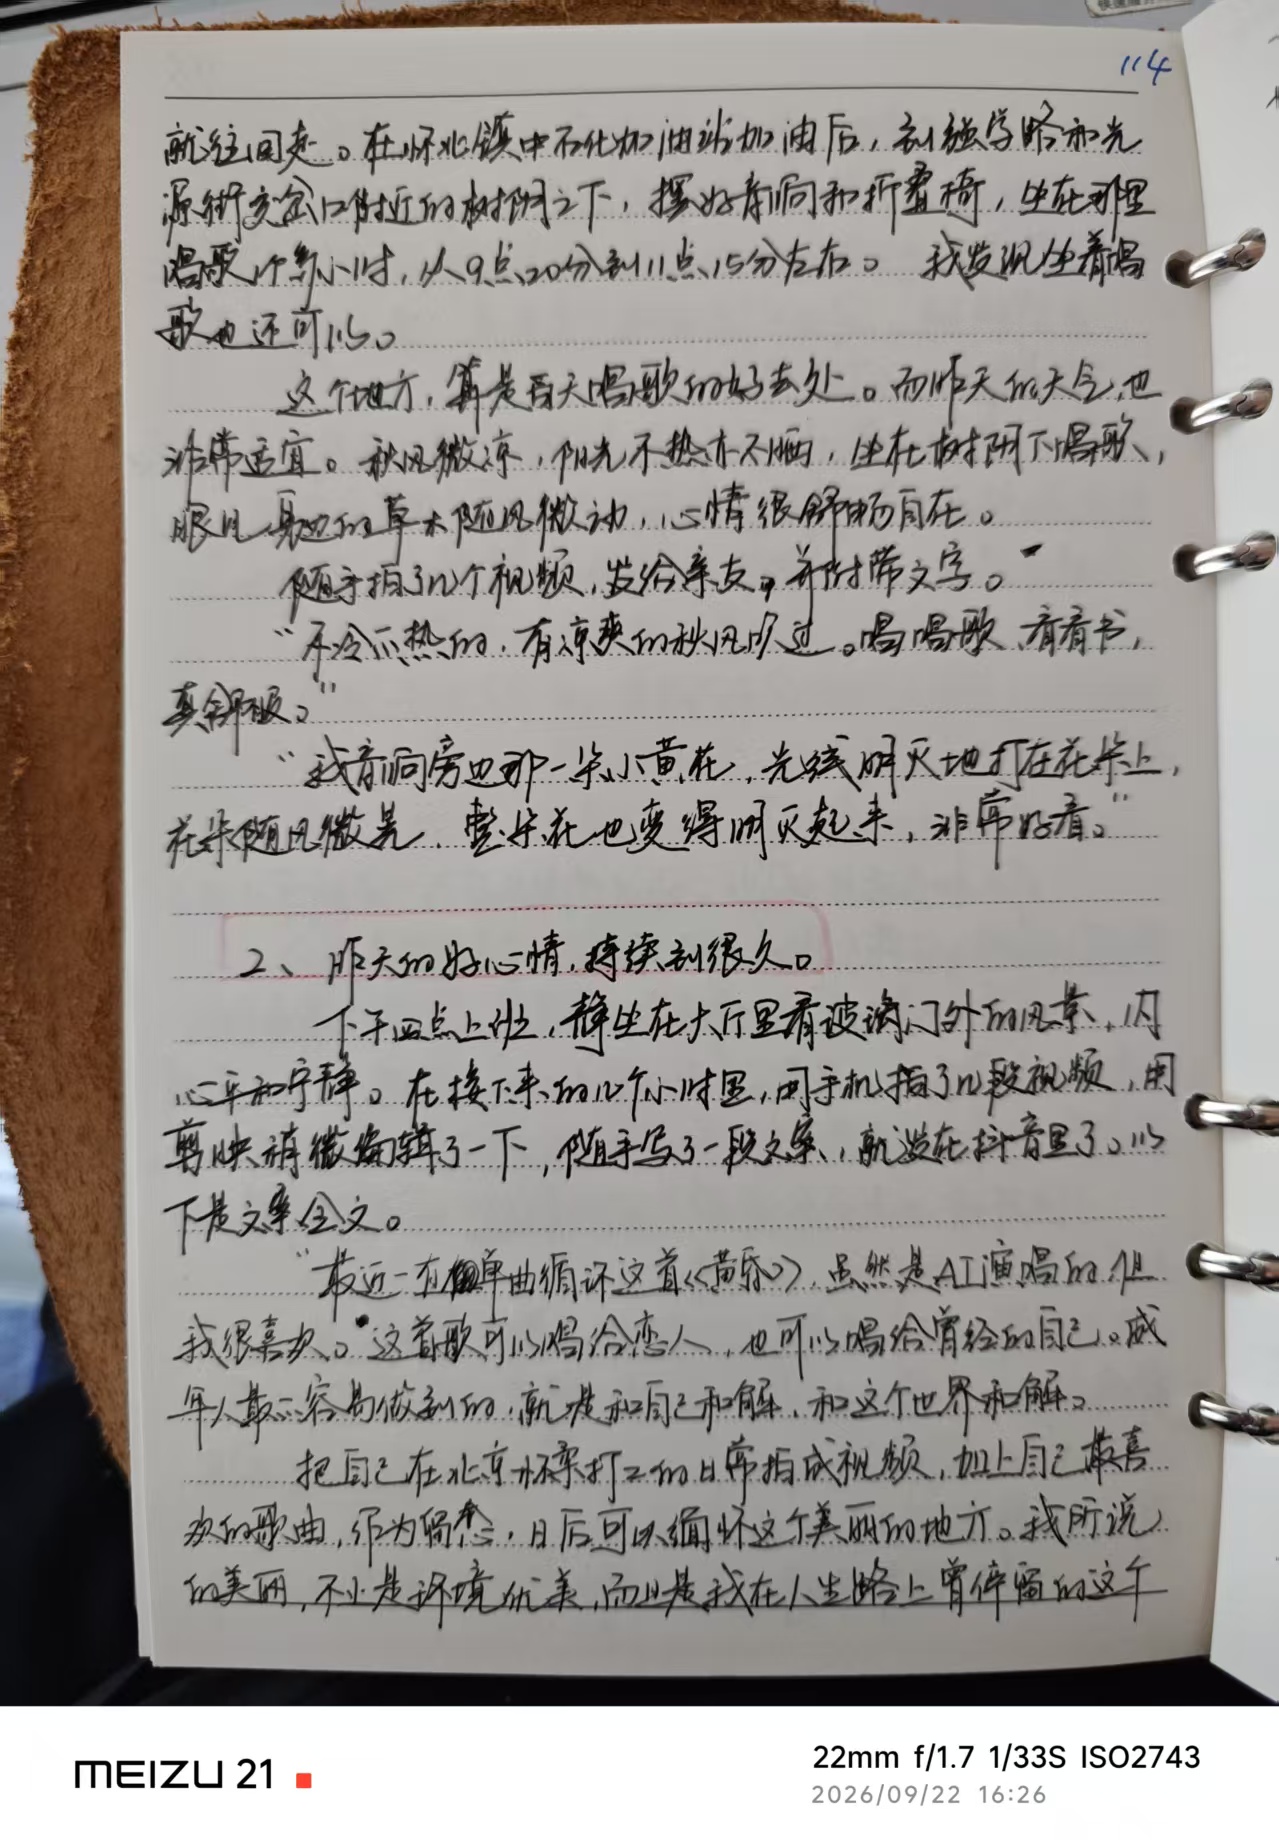 114
就往回走。在怀北镇中石化加油站加油后，到强学路和光
源街交会口附近的树阴之下，摆好音响和折叠椅，坐在那里
唱歌个多小时，从9点20分到11点15分左右。我发现坐着唱
歌也还可以。
这个地方，算是白天唱歌的好去处。而昨天的天气，也
非常适宜。秋风微凉，阳光不热亦不晒，坐在树阴下唱歌，
眼见身边的草木随风微动，心情很舒畅自在。
随手拍了几个视频，发给亲友，并附带文字。
“不冷不热的，有凉爽的秋风吹过。唱唱歌、看看书，
真舒服。”
“我音响旁边那一朵小黄花，光线明灭地打在花朵上，
花朵随风微晃，整朵花也变得明灭起来，非常好看。”
2、昨天的好心情，持续到很久。
下午四点上班，静坐在大厅里看玻璃门外的风景，内
心平和宁静。在接下来的几个小时里，用手机拍了几段视频，用
剪映稍微编辑了一下，随手写了一段文案，就发在抖音里了。以
下是文案全文。
“最近一直单曲循环这首《黄昏》，虽然是AI演唱的，但
我很喜欢。这首歌可以唱给恋人，也可以唱给曾经的自己。成
年人最不容易做到的，就是和自己和解，和这个世界和解。
把自己在北京怀柔打工的日常拍成视频，加上自己最喜
欢的歌曲，作为留念，日后可以缅怀这个美丽的地方。我所说
的美丽，不止是环境优美，而且是我在人生路上曾停留的这个
快速
MEIZU 21
22mm f/1.7 1/33S ISO2743
2026/09/22 16:26